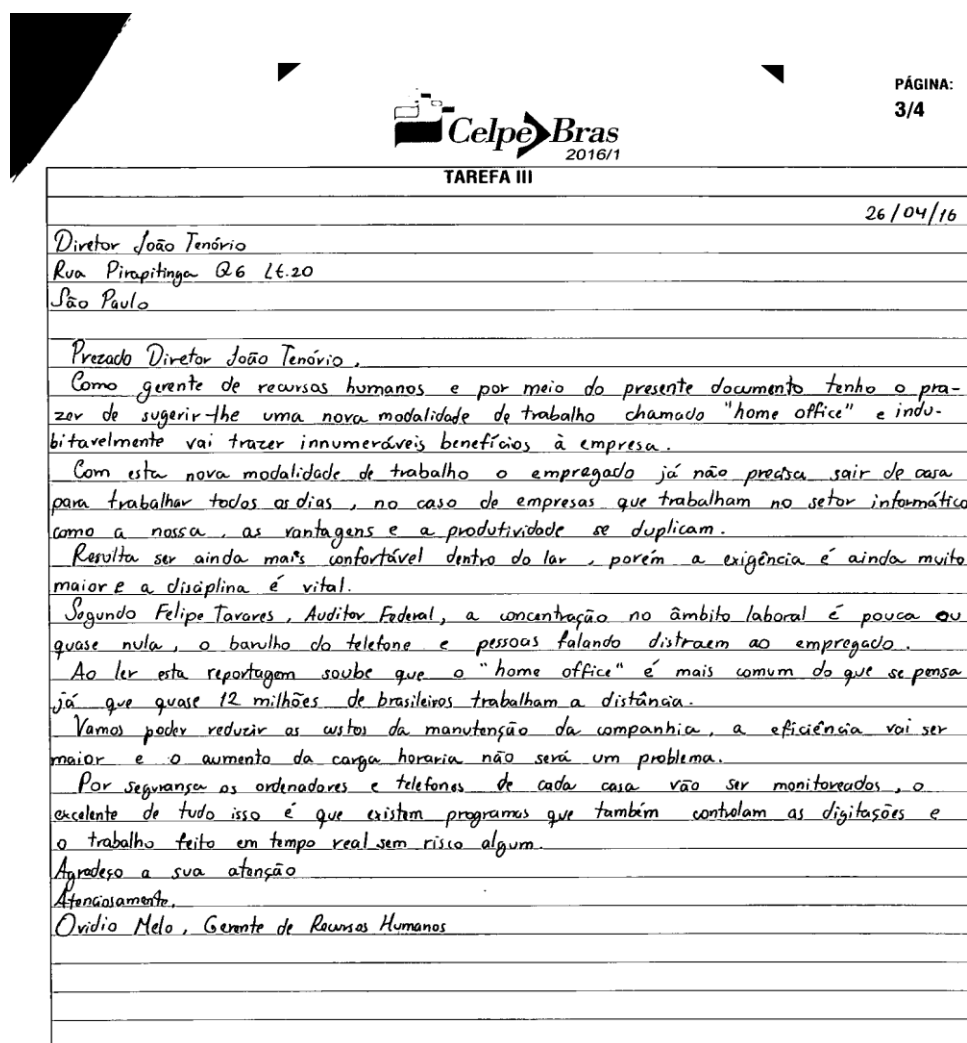 PÁGINA:
3/4
Celpe Bras
2016/1
TAREFA III
26/04/16
Diretor João Tenório
Rua Pirapitinga Q6 Lt.20
São Paulo
Prezado Diretor João Tenório,
Como gerente de recursos humanos e por meio do presente documento tenho o pra-
zer de sugerir-lhe uma nova modalidade de trabalho chamado "home office" e indu-
bitavelmente vai trazer innumeráveis benefícios à empresa.
Com esta nova modalidade de trabalho o empregado já não precisa sair de casa
para trabalhar todos os dias, no caso de empresas que trabalham no setor informático
como a nossa, as vantagens e a produtividade se duplicam.
Resulta ser ainda mais confortável dentro do lar, porém a exigência é ainda muito
maior e a disciplina é vital.
Segundo Felipe Tavares, Auditor Federal, a concentração no âmbito laboral é pouca ou
quase nula, o barulho do telefone e pessoas falando distraem ao empregado.
Ao ler esta reportagem soube que o "home office" é mais comum do que se pensa
já que quase 12 milhões de brasileiros trabalham a distância.
Vamos poder reduzir os custos da manutenção da companhia, a eficiência vai ser
maior e o aumento da carga horaria não será um problema.
Por segurança os ordenadores e telefones de cada casa vão ser monitoreados, o
excelente de tudo isso é que existem programas que também controlam as digitações e
o trabalho feito em tempo real sem risco algum.
Agradeço a sua atenção
Atenciosamente,
Ovidio Melo, Gerente de Recursos Humanos